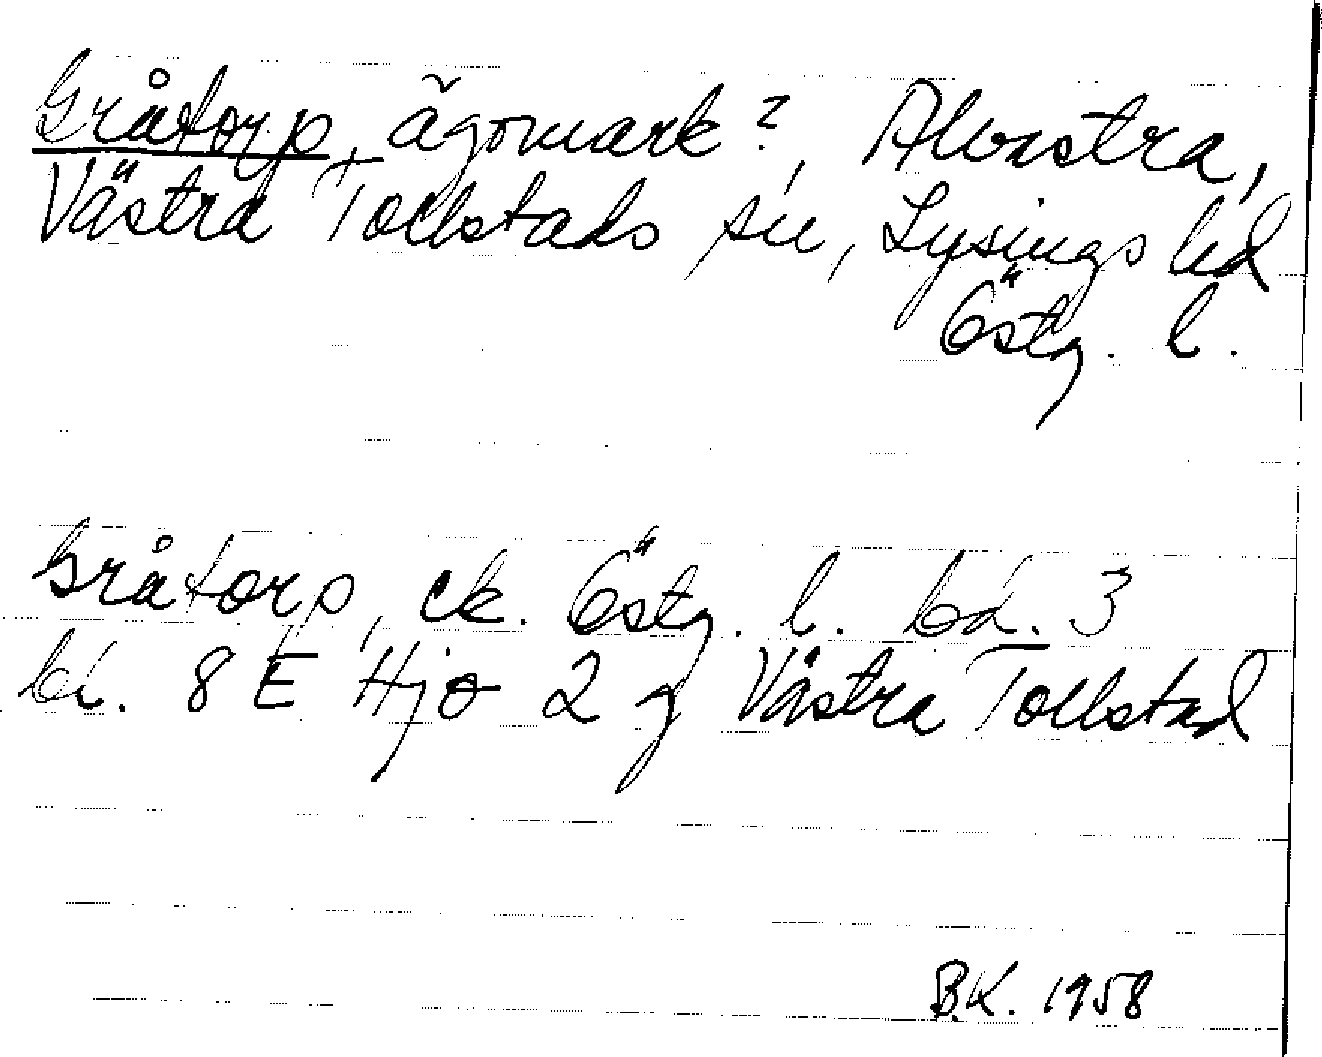 Gråtorp, ägomark?, Alvastra,
Västra Tollstads sn, Lysings hd
Östg. l.
Gråtorp, ek. Östg. l. bd. 3
bl. 8 E Hjo 2 g Västra Tollstad
B.K. 1958